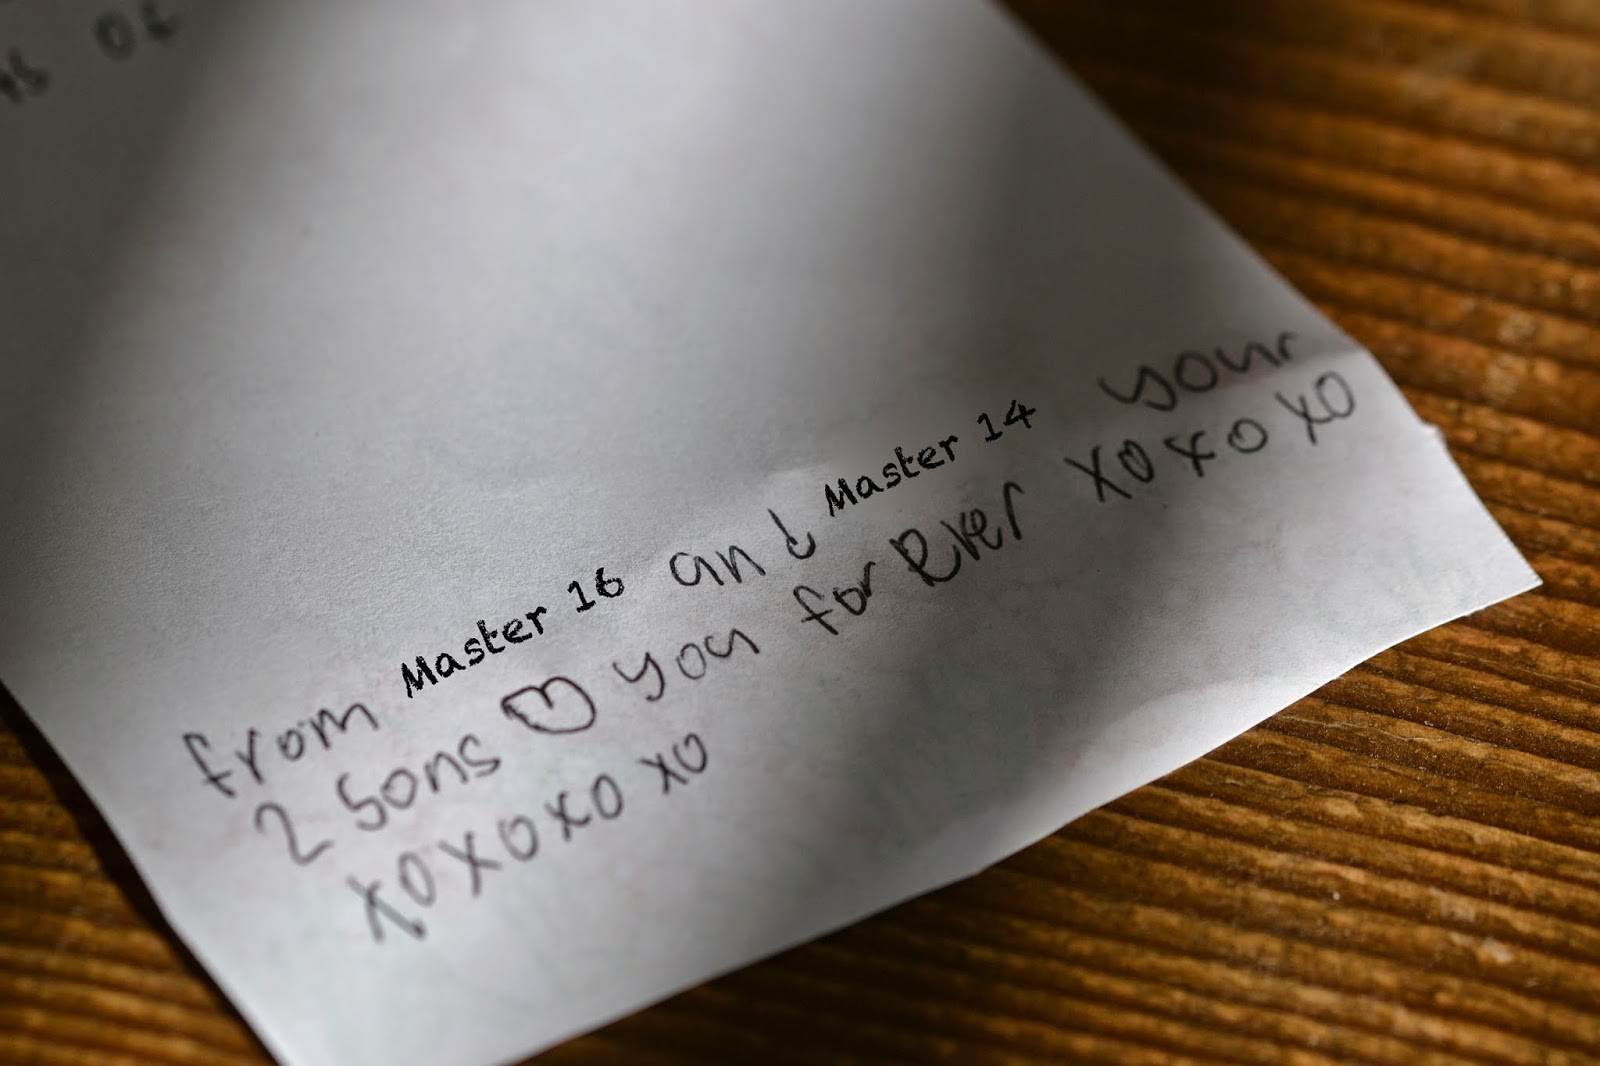 from Master 16 and Master 14 your
2 sons ♡ you for Ever xoxoxo
xoxoxoxo